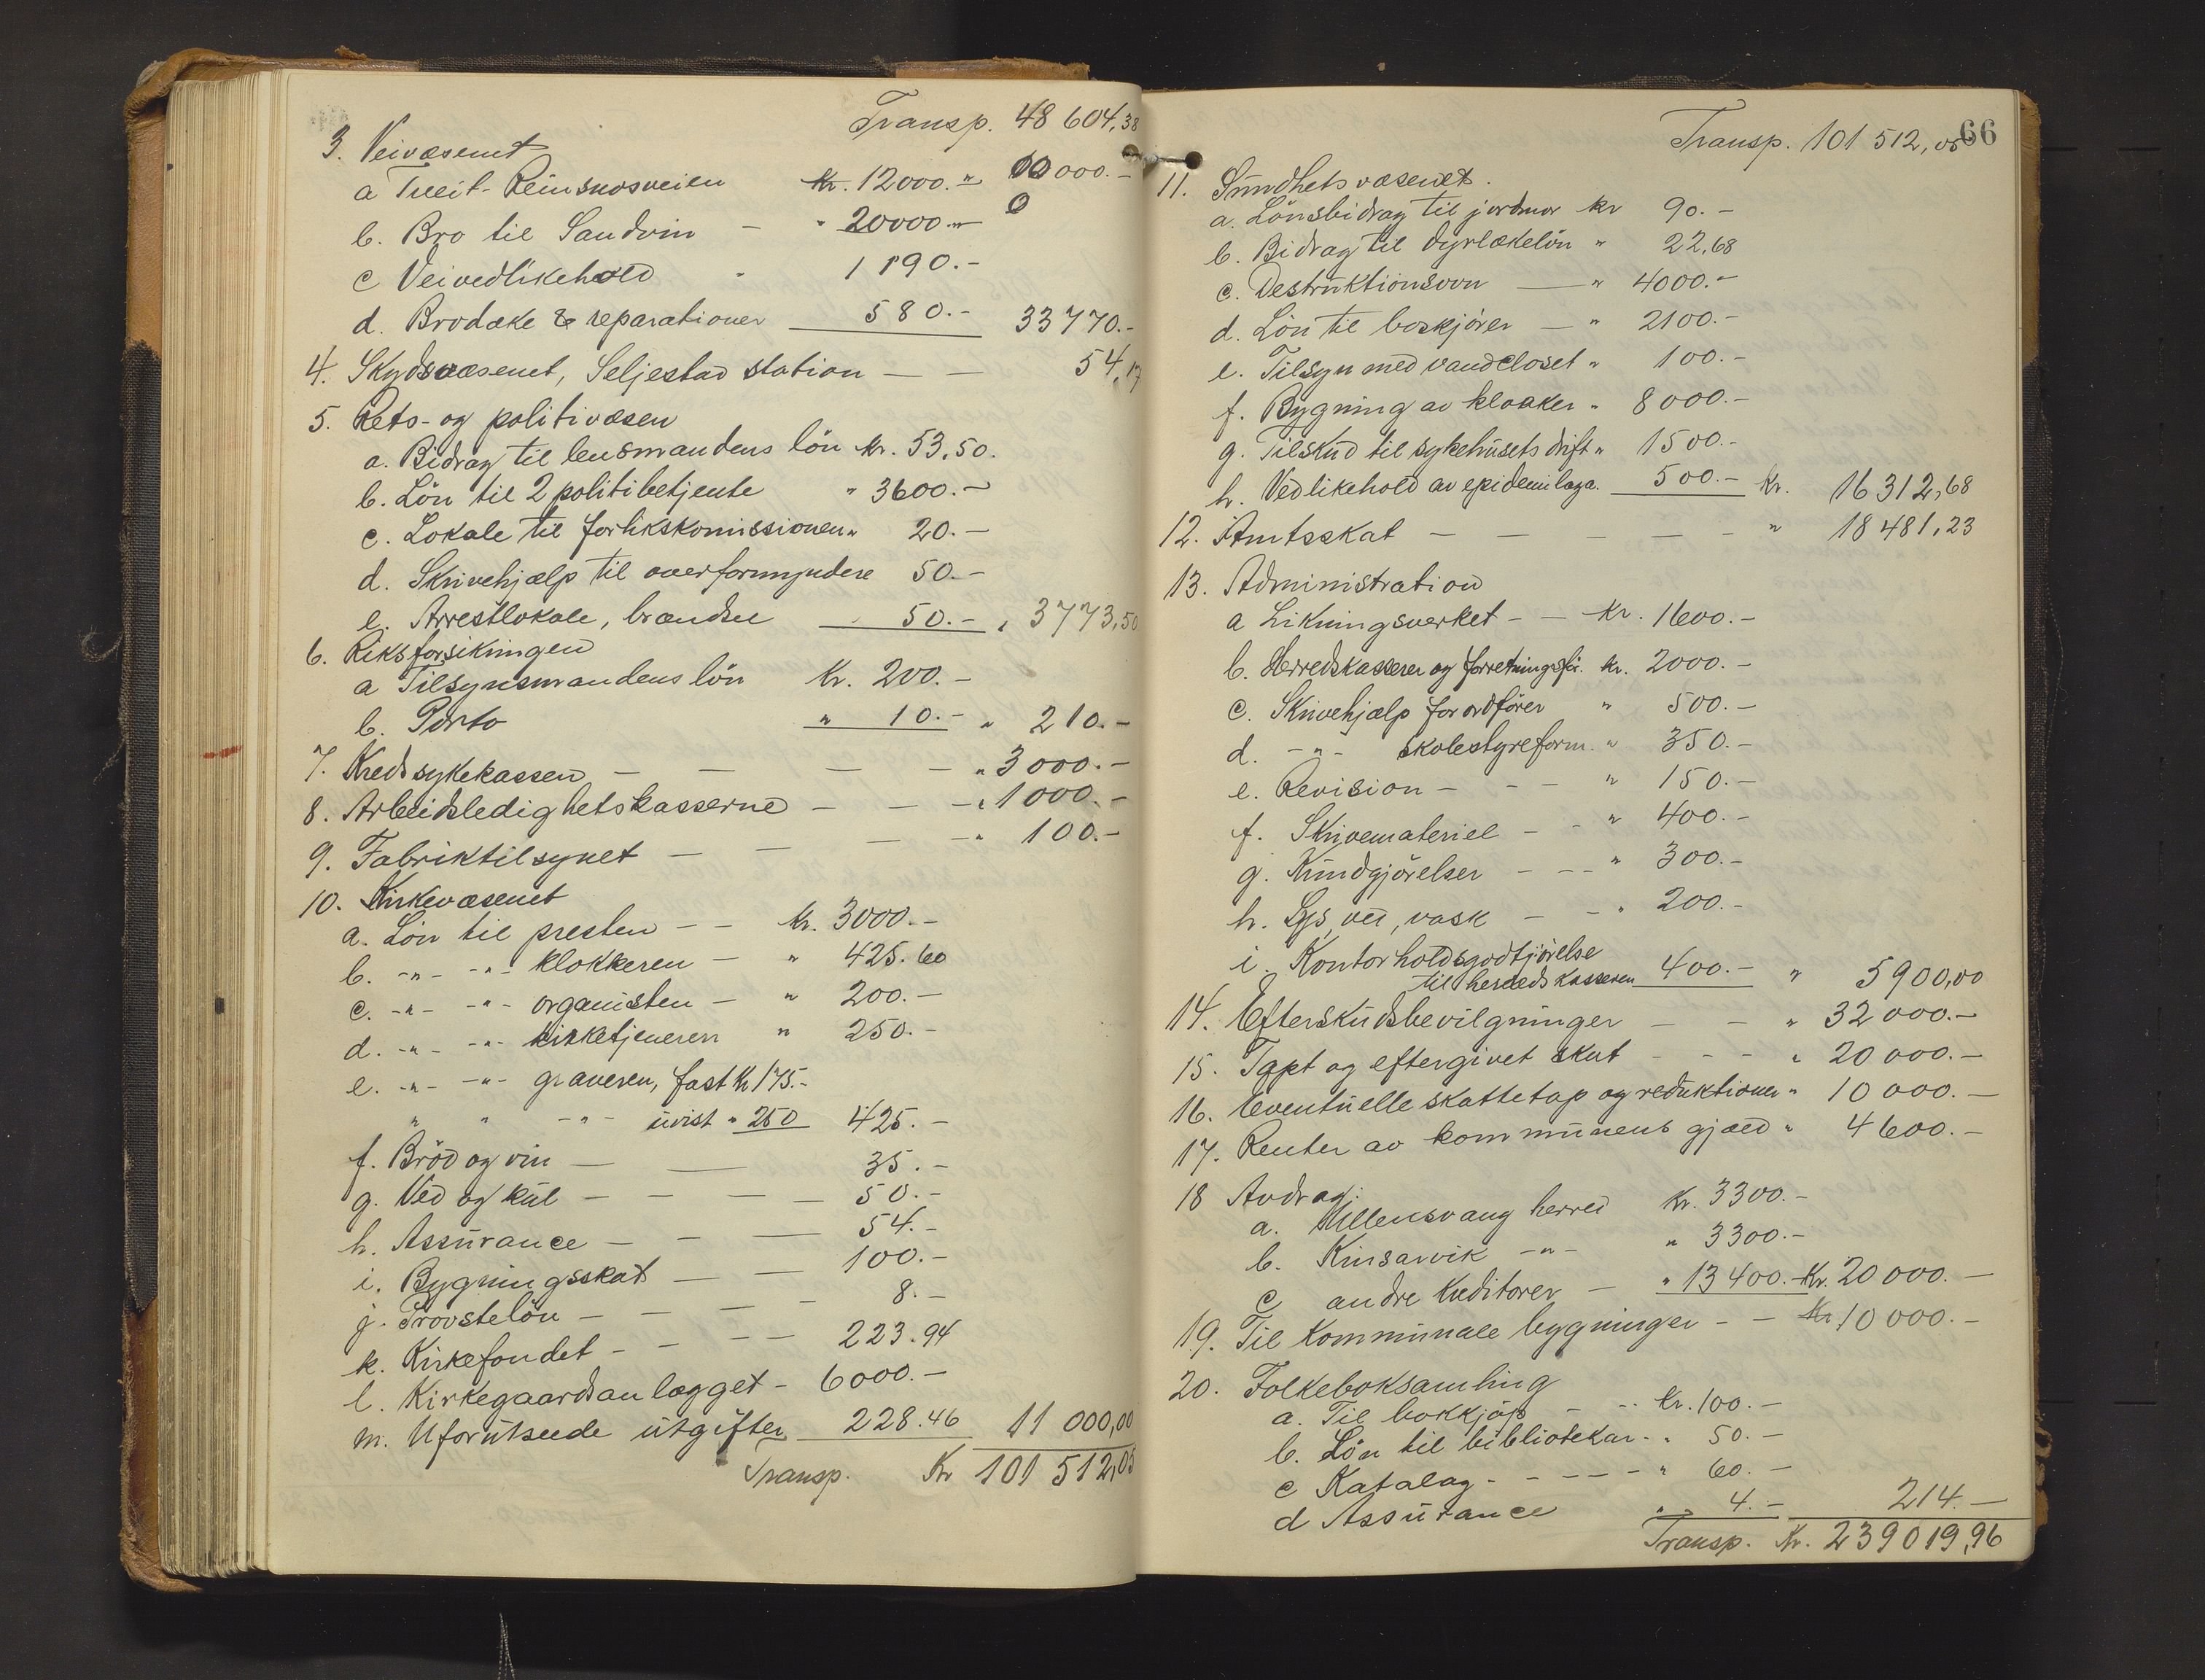 Transp. 48 604,38
3. Veivæsenet
a Tveit-Reinsnosveien Kr. 12000.- 10 000.-
b. Bro til Sandvin - " 20000.- 0
c Veivedlikehold - 1190.-
d. Brodæke & reparationer 580.- 33770.-
4. Skydsvæsenet, Seljestad station — — 54,17
5. Rets- og politivæsen
a. Bidrag til lensmandens lön kr. 53.50.
b. Lön til 2 politibetjente " 3600.-
c. Lokale til forlikskomissionen " 20.-
d. Skrivehjælp til overformyndere 50.-
e. Arrestlokale, brændsel 50.- " 3773,50
6. Riksforsikringen
a Tilsynsmandens lön Kr. 200.-
b. Porto " 10.- " 210.-
7. Kredssykekassen — — — — " 3000.-
8. Arbeidsledighetskasserne — — — " 1000.-
9. Fabriktilsynet — — — — " 100.-
10. Kirkevæsenet
a. Lön til presten - - kr. 3000.-
b. -"- -"- klokkeren - " 425.60
c. -"- -"- organisten - " 200.-
d. -"- -"- kirketjeneren " 250.-
e. -"- -"- graveren, fast Kr 175.-
" " -"- uvist " 250 425.-
f. Bröd og vin — — 35.-
g. Ved og kul - - - - 50.-
h. Assurance - - — 54.-
i. Bygningsskat - - 100.-
j. Provstelön - - - - 8.-
k. Kirkefondet - - - - 223.94
l. Kirkegaardsanlægget - 6000.-
m. Uforutseede utgifter 228.46 11 000,00
Transp. Kr 101 512,05
66
Transp. 101 512,05
11. Sundhetsvæsenet.
a. Lönsbidrag til jordmor kr 90.-
b. Bidrag til dyrlækelön " 22,68
c. Destruktionsovn — " 4000.-
d. Lön til boskjörer — " 2100.-
e. Tilsyn med vandcloset " 100.-
f. Bygning av kloaker " 8000.-
g. Tilskud til sykehusets drift " 1500.-
h. Vedlikehold av epidemilaga. 500.- Kr. 16312,68
12. Amtsskat — — — — — " 18 481,23
13. Administration
a Likningsverket - — Kr. 1600.-
b. Herredskasserer og forretningsför. kr. 2000.-
c. Skrivehjælp for ordförer " 500.-
d. -"- skolestyreform. " 350.-
e. Revision - - - " 150.-
f. Skrivemateriel - - " 400.-
g. Kundgjörelser - - - " 300.-
h. Lys, ved, vask - - " 200.-
i. Kontorholdsgodtjörelse
til herredskasseren 400.- " 5900,00
14. Efterskudsbevilgninger — — " 32 000.-
15. Tapt og eftergivet skat - - - " 20 000.-
16. Eventuelle skattetap og reduktioner " 10 000.-
17. Renter av kommunens gjæld " 4600.-
18 Avdrag:
a. Ullensvang herred Kr. 3300.-
b. Kinsarvik -"- " 3300.-
c andre kreditorer — " 13400.- Kr. 20 000.-
19. Til Kommunale bygninger - - Kr 10 000.-
20. Folkeboksamling
a. Til bokkjöp - - kr. 100.-
b. Lön til bibliotekar - " 50.-
c Katalag - - - - - " 60.-
d Assurance " 4.- 214.-
Transp. Kr. 239019,96